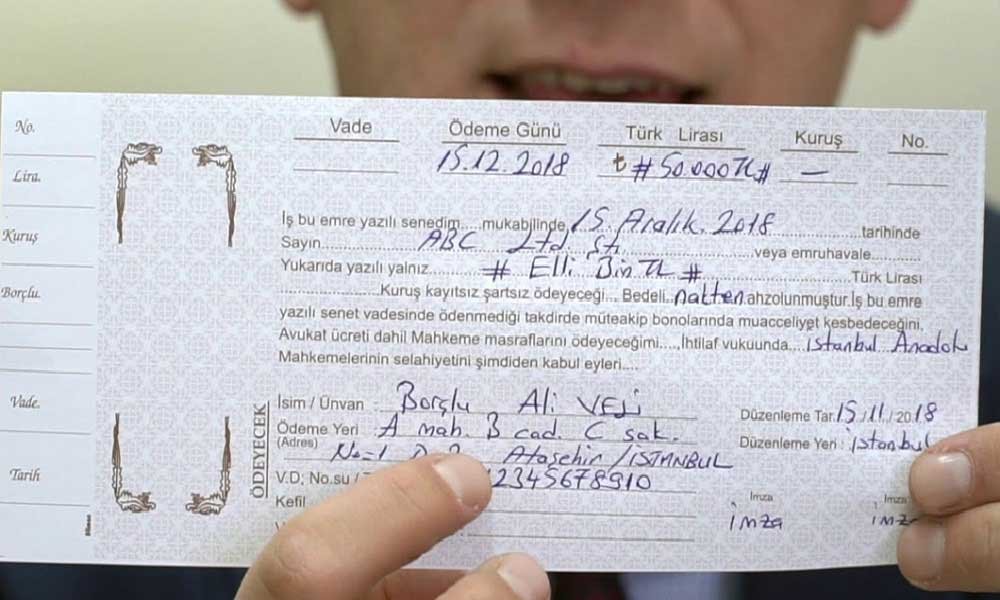 No.
Lira.
Kuruş
Borçlu.
Vade.
Tarih
Vade Ödeme Günü Türk Lirası Kuruş No.
15.12.2018 ₺ # 50.000 TL # —
İş bu emre yazılı senedim....mukabilinde 15. Aralık. 2018 tarihinde
Sayın ABC Ltd Şti veya emruhavale
Yukarıda yazılı yalnız # Elli Bin TL # Türk Lirası
Kuruş kayıtsız şartsız ödeyeceği... Bedeli nakten ahzolunmuştur. İş bu emre
yazılı senet vadesinde ödenmediği takdirde müteakip bonolarında muacceliyet kesbedeceğini,
Avukat ücreti dahil Mahkeme masraflarını ödeyeceğimi....,İhtilaf vukuunda.... istanbul Anadolu
Mahkemelerinin selahiyetini şimdiden kabul eyleri....
ÖDEYECEK
İsim / Ünvan Borçlu Ali VELİ
Ödeme Yeri A mah. B cad. C sok.
(Adres) No=1 Ataşehir/İSTANBUL
V.D. No.su / 12345678910
Kefil
Düzenleme Tar. 15/11/2018
Düzenleme Yeri : istanbul
İmza İmza
imza